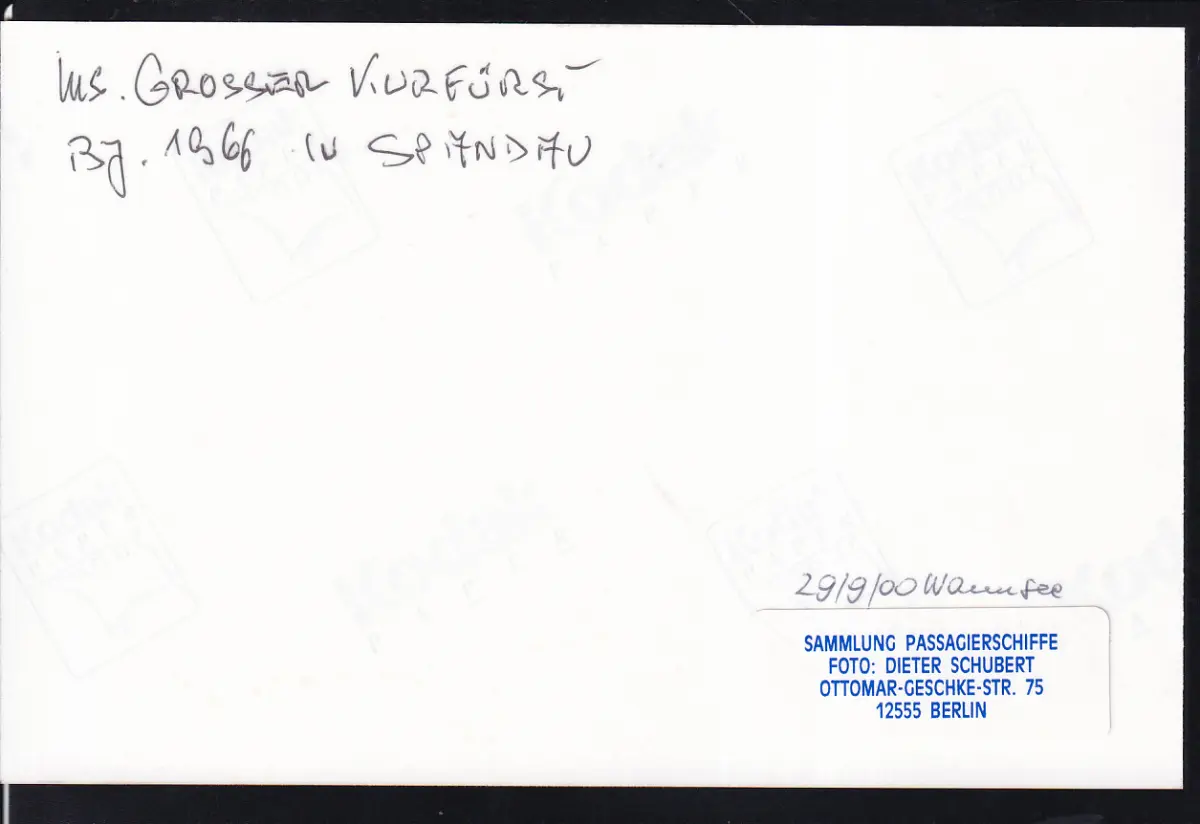 MS. GROSSER KURFÜRST
Bj. 1966 IN SPANDAU
29/9/00 Wannsee
SAMMLUNG PASSAGIERSCHIFFE
FOTO: DIETER SCHUBERT
OTTOMAR-GESCHKE-STR. 75
12555 BERLIN